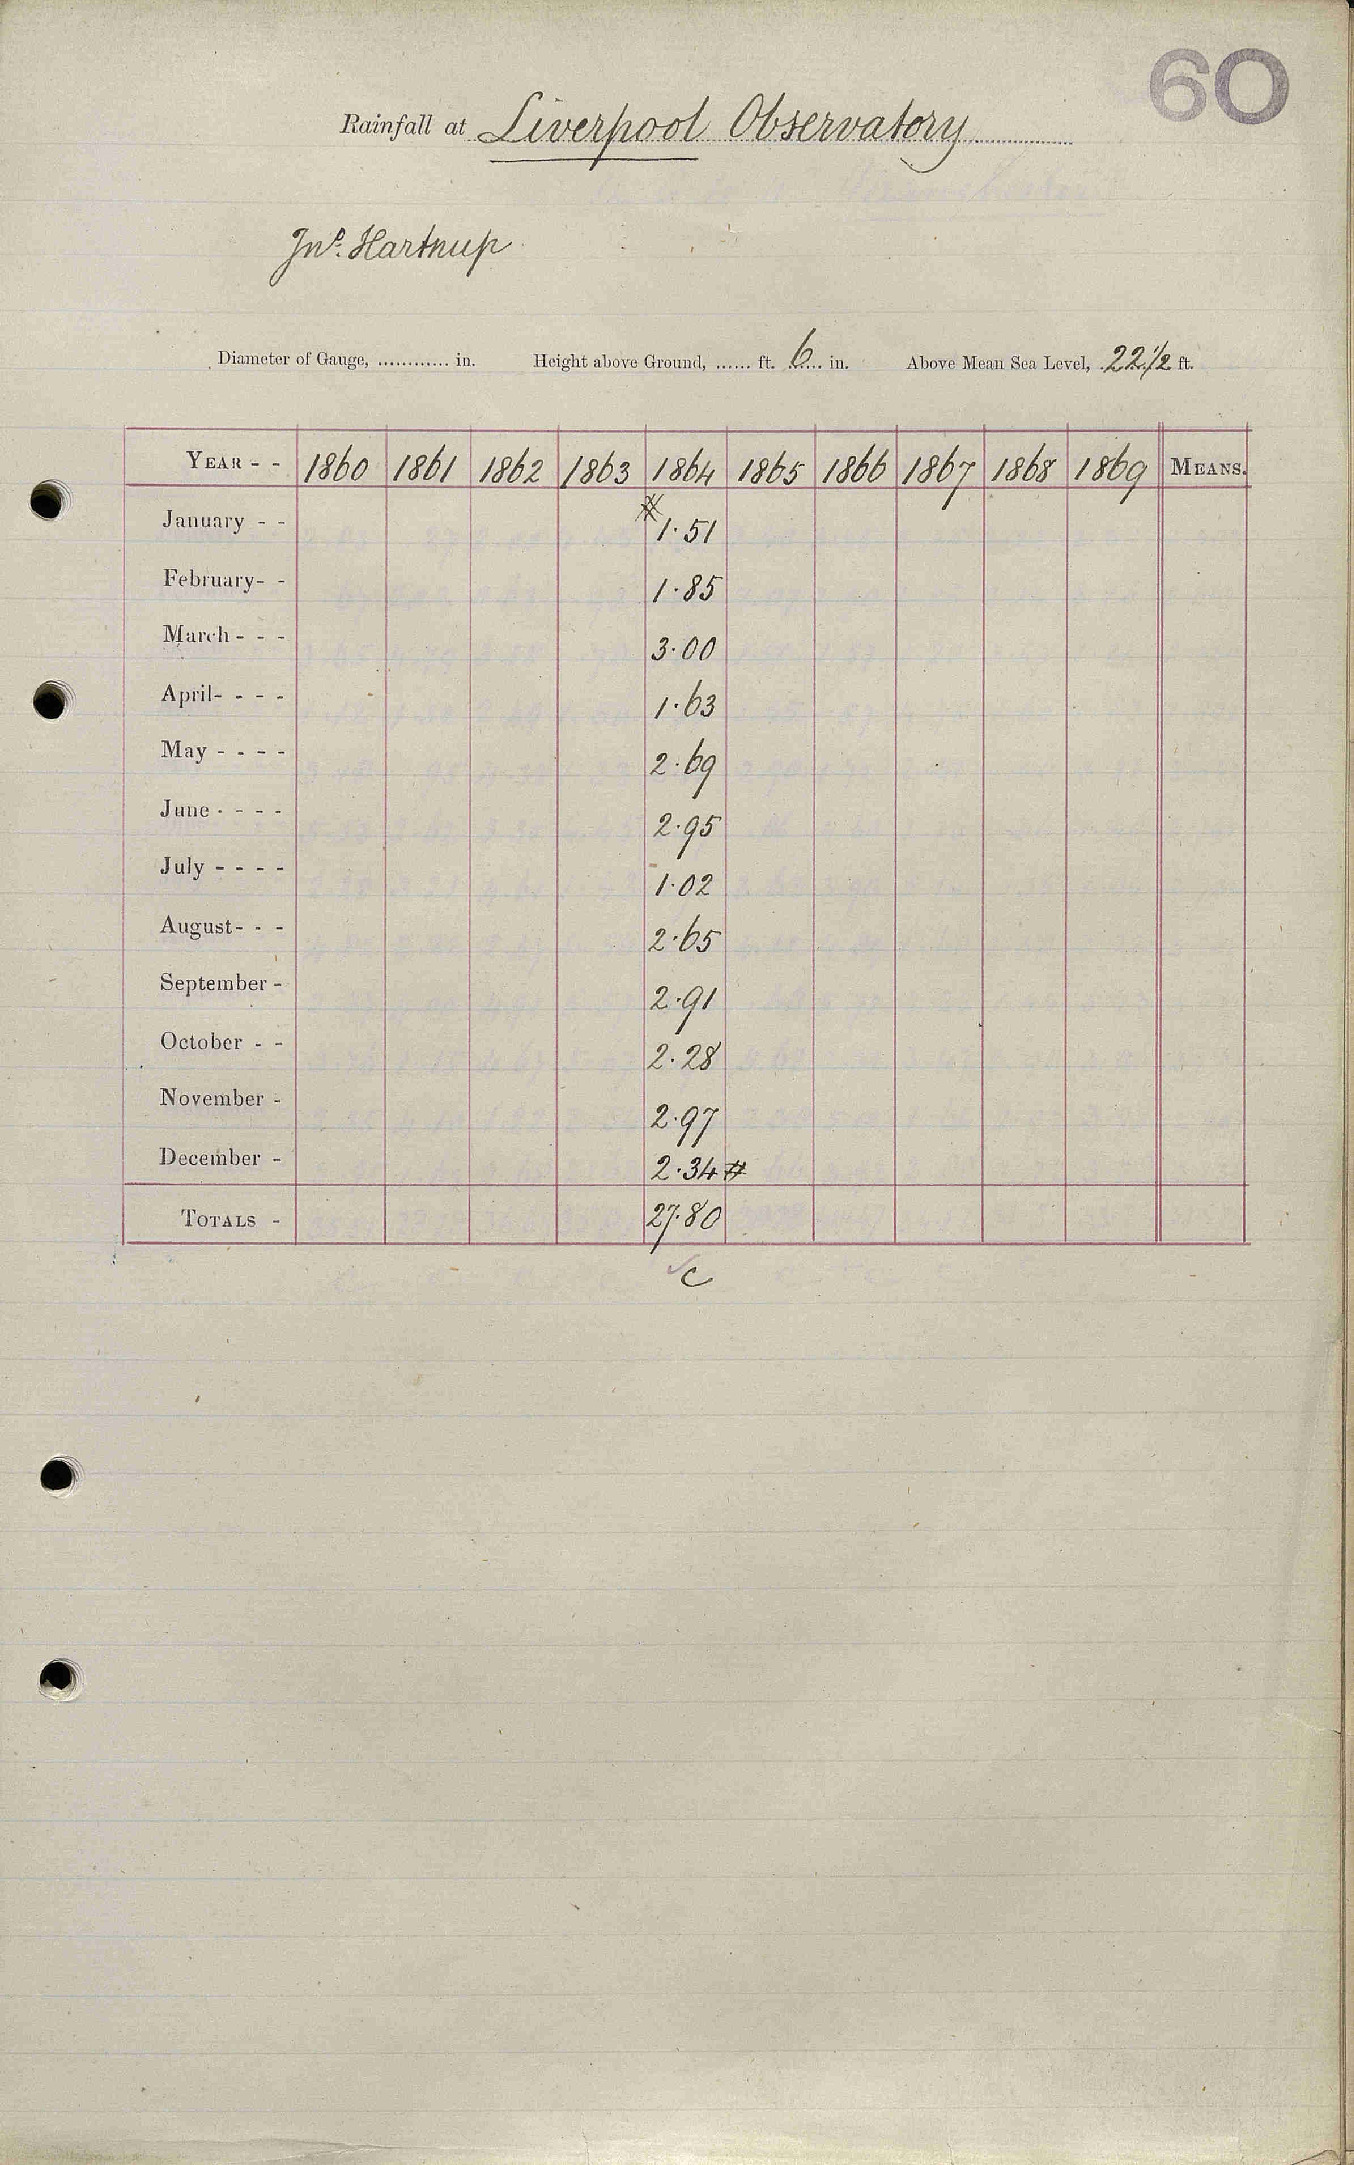 60
Rainfall at Liverpool Observatory
Jno. Hartnup
Diameter of Gauge, ............ in. Height above Ground, ...... ft. 6 in. Above Mean Sea Level, 22 1/2 ft.
YEAR - - 1860 1861 1862 1863 1864 1865 1866 1867 1868 1869 MEANS.
January - - # 1.51
February - - 1.85
March - - - 3.00
April - - - - 1.63
May - - - - 2.69
June - - - - 2.95
July - - - - 1.02
August - - - 2.65
September - 2.91
October - - 2.28
November - 2.97
December - 2.34 #
TOTALS - 27.80
✓ c